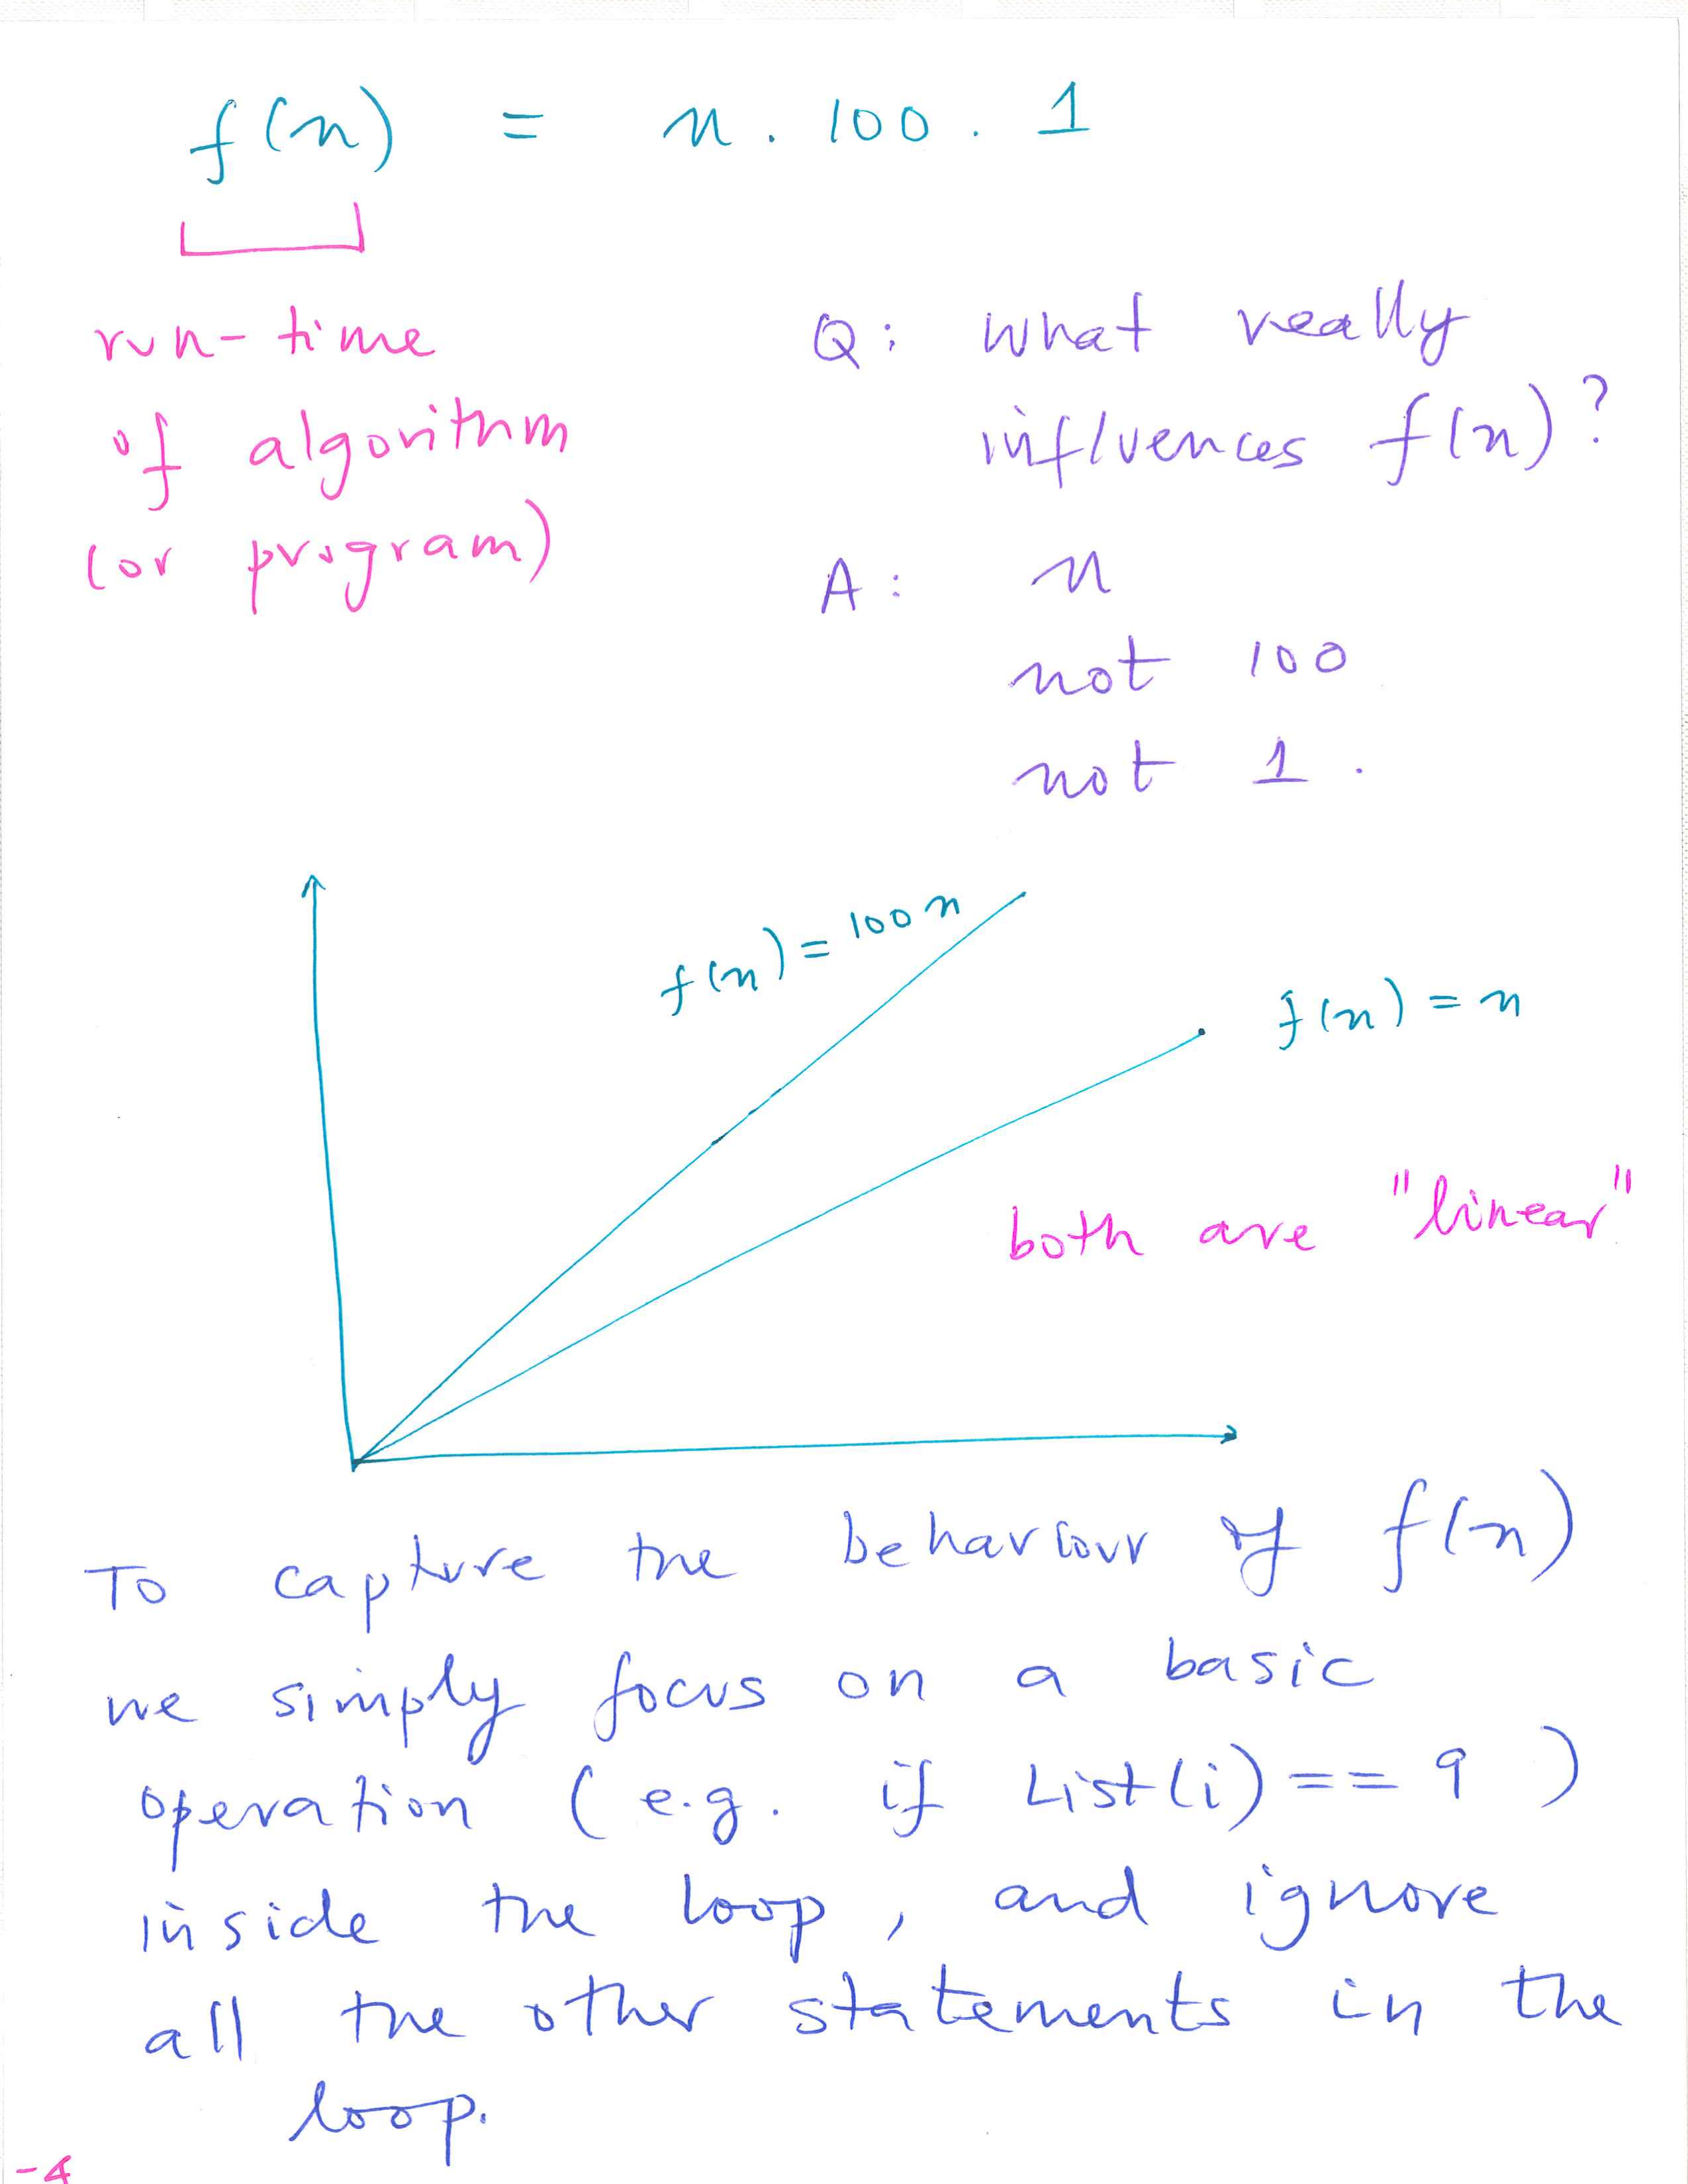 f(n) = n . 100 . 1
run-time
of algorithm
(or program)
Q: what really
influences f(n)?
A: n
not 100
not 1.
f(n) = 100n
f(n) = n
both are "linear"
To capture the behaviour of f(n)
we simply focus on a basic
operation (e.g. if List(i) == 9 )
inside the loop, and ignore
all the other statements in the
loop.
-4